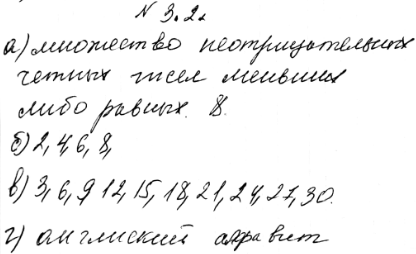 № 3.2.
а) множество неотрицательных
четных чисел меньших
либо равных 8.
б) 2, 4, 6, 8,
в) 3, 6, 9 12, 15, 18, 21, 24, 27, 30.
г) англиский алфавит